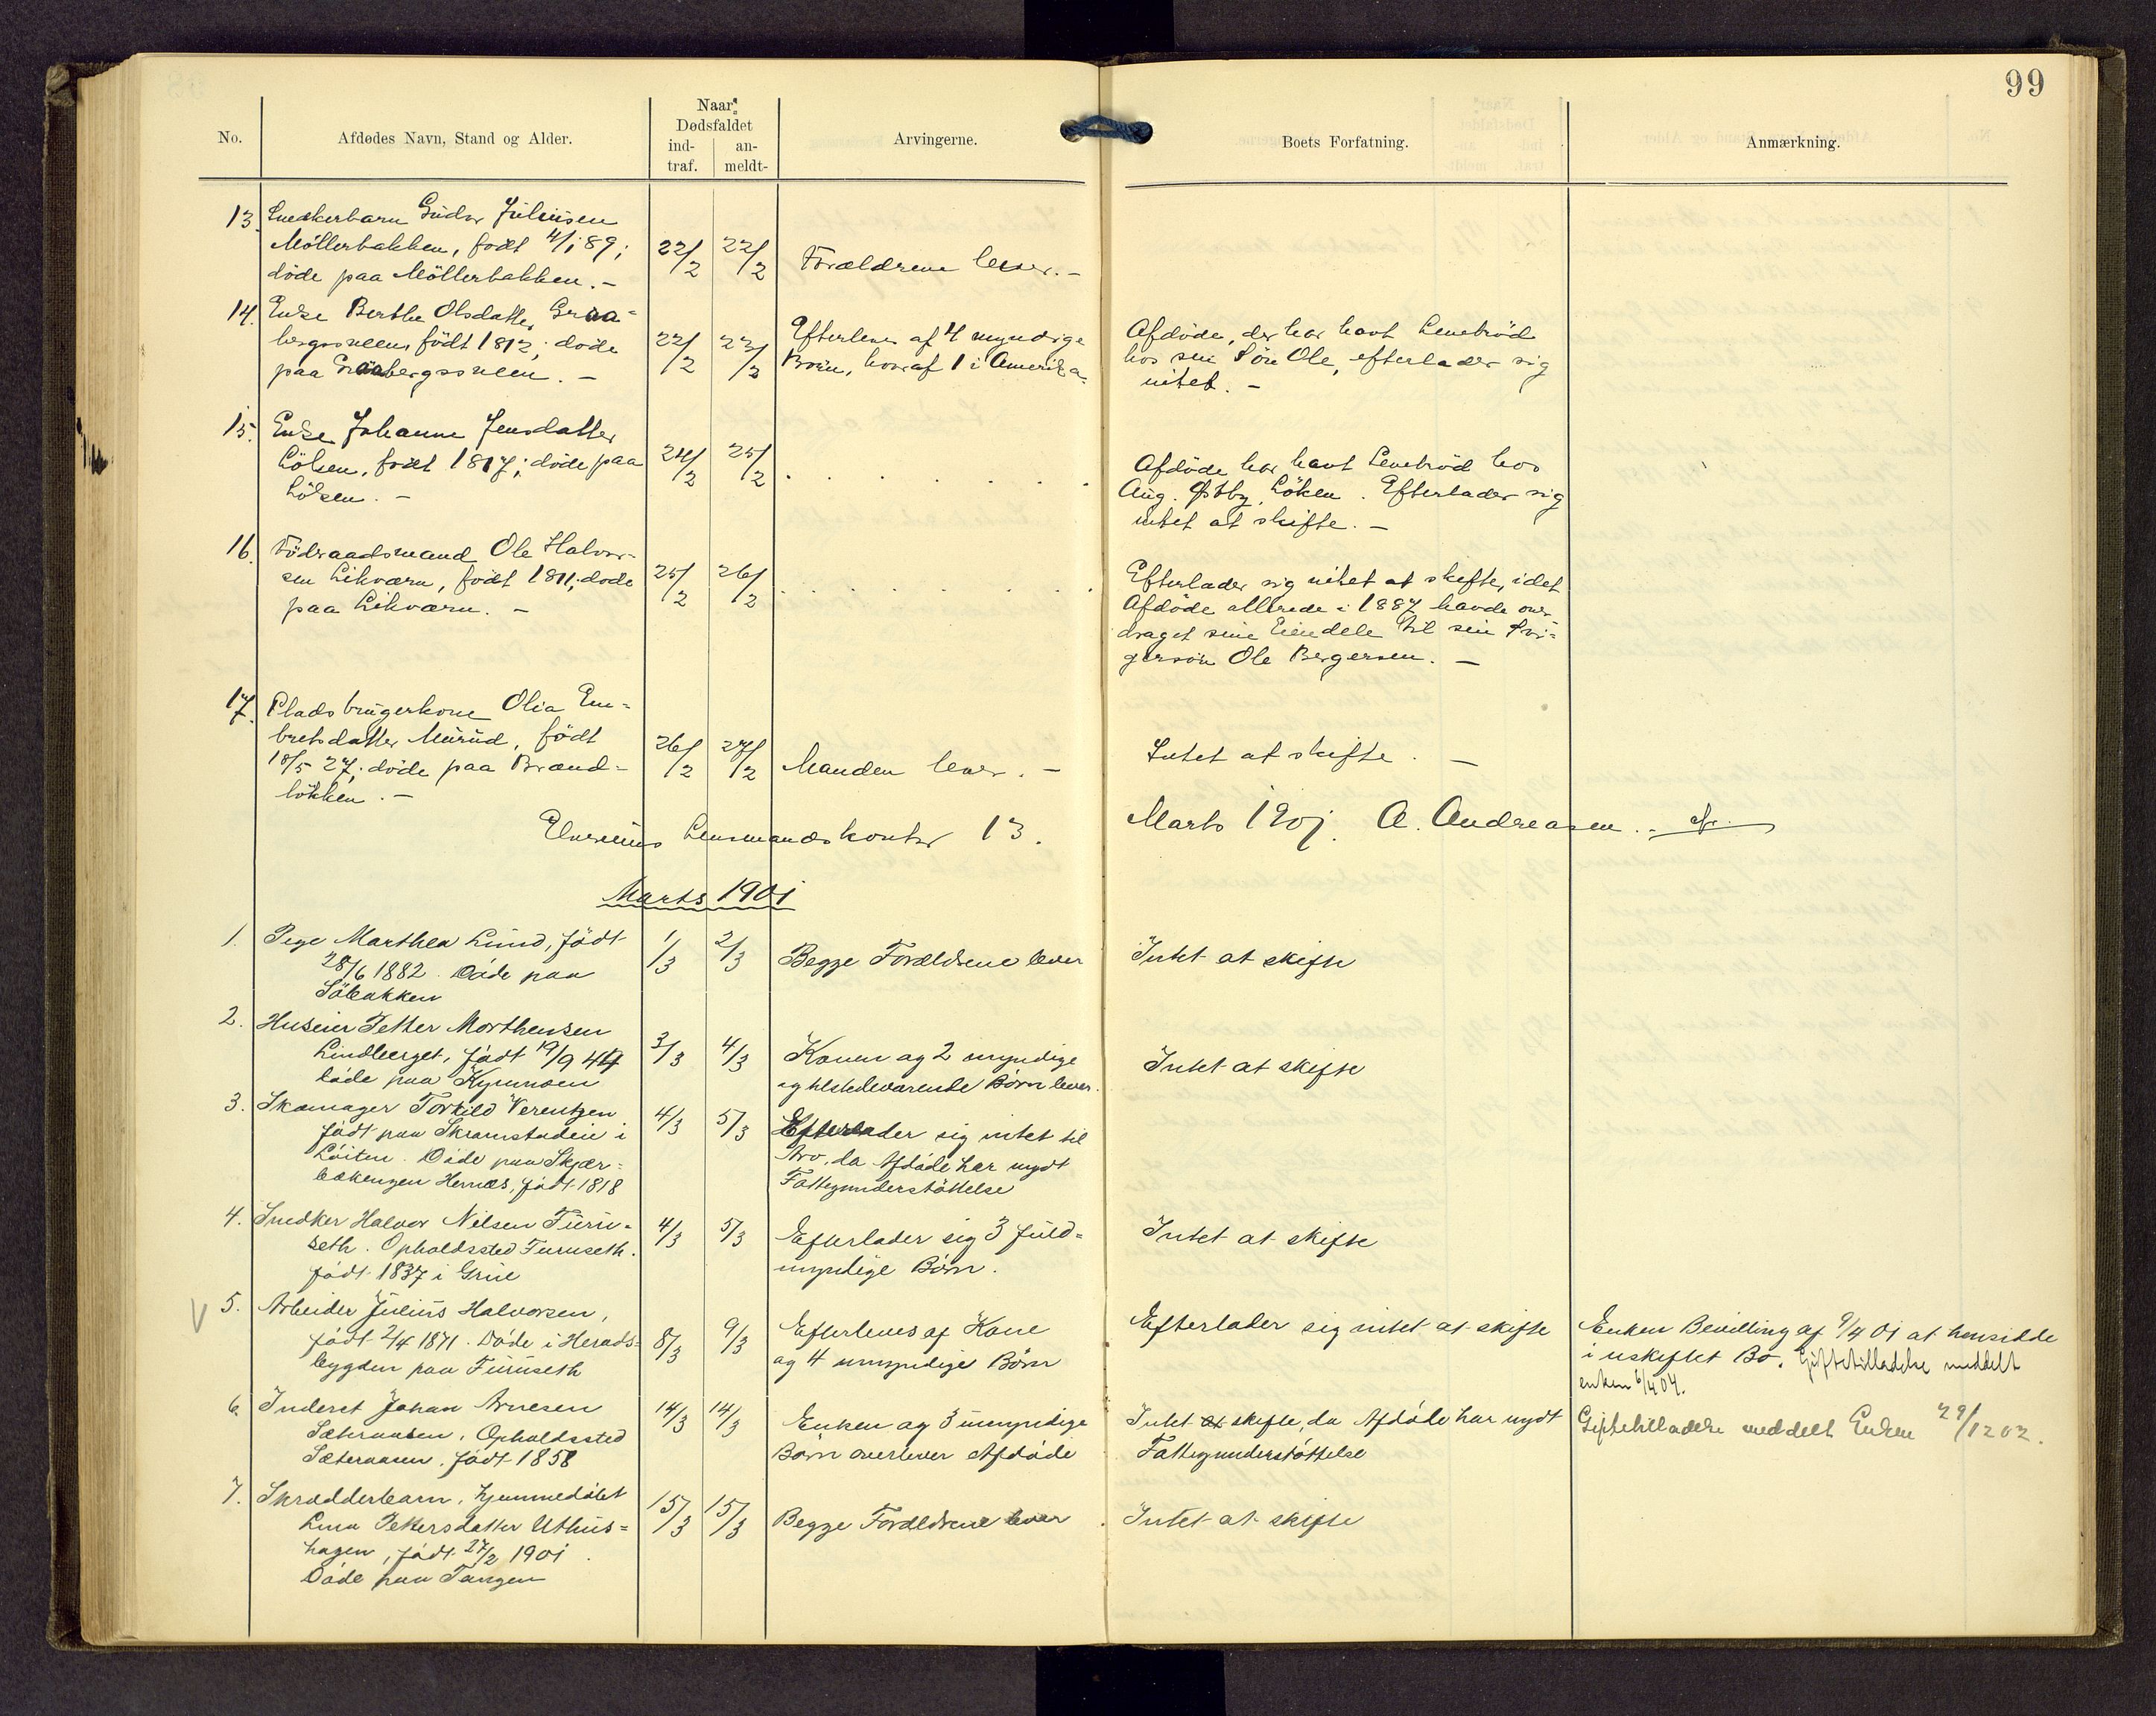 99
No.
Afdødes Navn, Stand og Alder.
Naar
Dødsfaldet
ind-
traf.
an-
meldt-
Arvingerne.
Boets Forfatning.
Anmærkning.
13. Snedkerbarn Gudor Juliusen
Möllerbakken, født 4/1 89;
döde paa Möllerbakken. –
22/2 22/2
Forældrene lever. –
14. Enke Berthe Olsdatter Graa-
bergssveen, født 1812; döde
paa Graabergssveen. –
22/2 23/2
Efterleves af 4 myndige
Börn, hvoraf 1 i Amerika.
Afdöde, der har havt Levebröd
hos sin Sön Ole, efterlader sig
intet. –
15. Enke Johanne Jensdatter
Löken, født 1817; döde paa
Löken. –
24/2 25/2
Afdöde har havt Levebröd hos
Aug. Østby, Löken. Efterlader sig
intet at skifte. –
16. Föderaadsmand Ole Halvor-
sen Likværn, født 1811; döde
paa Likværn. –
25/2 26/2
Efterlader sig intet at skifte, idet
Afdöde allerede i 1887 havde over-
draget sine Eiendele til sin Svi-
gersön Ole Bergersen. –
17. Pladsbrugerkone Olia Em-
bretsdatter Murud, født
18/5 27; döde paa Brænd-
løkken. –
26/2 27/2
Manden lever. –
Intet at skifte. –
Elverums Lensmandskontor 13. Marts 1901. A. Andreasen
Marts 1901
1. Pige Marthea Lund, født
28/6 1882. Döde paa
Söbakken
1/3 2/3
Begge Forældrene lever
Intet at skifte
2. Huseier Petter Morthensen
Lindberget, født 19/9 44
döde paa
3/3 4/3
Konen og 2 myndige
og tilstedeværende Börn lever.
Intet at skifte
3. Skomager Torkild Verentzen
født paa Skramstadeie i
Löiten. Döde paa Skjær-
bækengen Hernæs, født 1818
4/3 5/3
Efterlader sig intet til
Arv, da Afdöde har nydt
Fattigunderstöttelse
4. Snedker Halvor Nilsen Furu-
seth. Opholdssted Furuseth.
født 1837 i Grue
4/3 5/3
Efterlader sig 3 fuld-
myndige Börn.
Intet at skifte
5. Arbeider Julius Halvorsen,
født 2/4 1871. Döde i Herads-
bygden paa Furuseth
8/3 9/3
Efterleves af Kone
og 4 umyndige Börn
Efterlader sig intet at skifte
Enken Bevilling af 9/4 01 at hensidde
i uskiftet Bo. Giftetilladelse meddelt
enken 6/4 04.
6. Inderst Johan Arnesen
Sæteraasen, Opholdssted
Sæteraasen, født 1858
14/3 14/3
Enken og 3 umyndige
Börn overlever Afdöde
Intet at skifte, da Afdöde har nydt
Fattigunderstöttelse
Giftetilladelse meddelt Enken 29/12 02.
7. Skrædderbarn, hjemmedöbt
Lina Pettersdatter Uthus-
hagen, født 27/2 1901.
Döde paa Tangen
15/3 15/3
Begge Forældrene lever
Intet at skifte